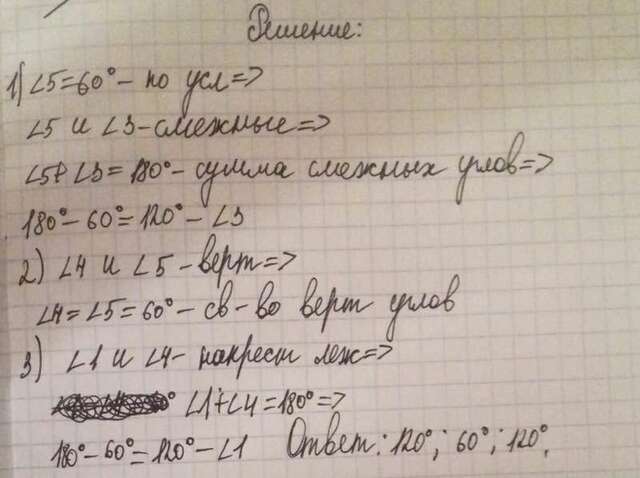 Решение:
1) ∠5=60°- по усл=>
∠5 и ∠3-смежные=>
∠5+∠3=180°-сумма смежных углов=>
180°-60°=120°-∠3
2) ∠4 и ∠5-верт=>
∠4=∠5=60°-св-во верт углов
3) ∠1 и ∠4- накрест леж=>
∠1+∠4=180°=>
180°-60°=120°-∠1 Ответ: 120°; 60°; 120°.